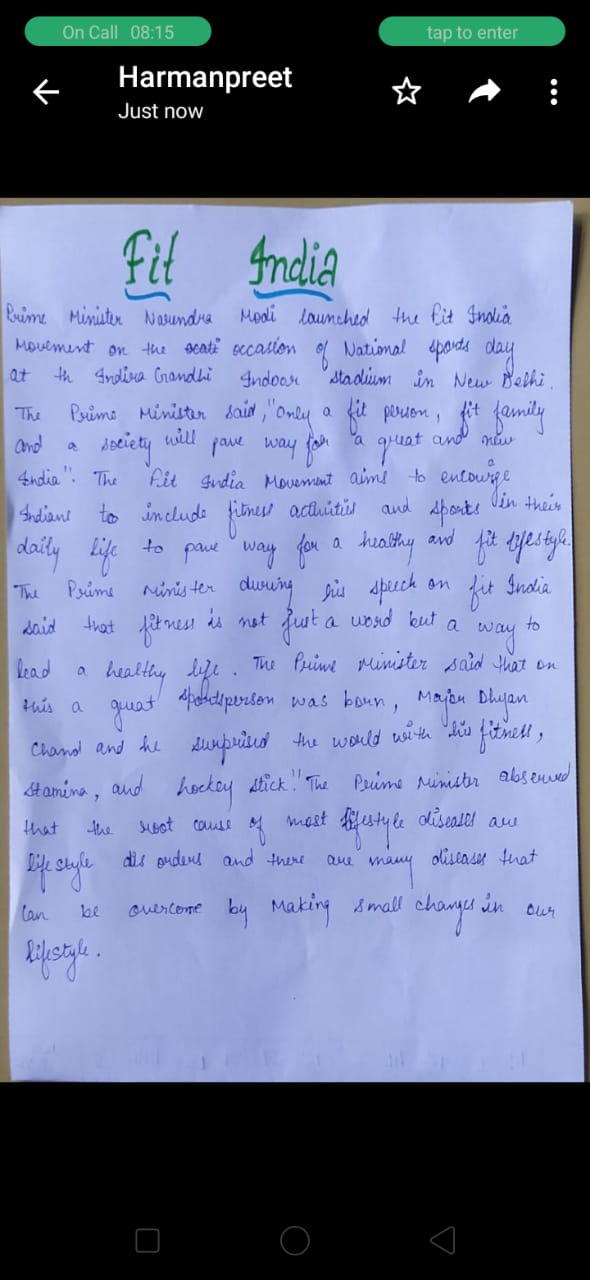 On Call 08:15
tap to enter
Harmanpreet
Just now
Fit India
Prime Minister Narendra Modi launched the fit India
Movement on the occasion of National sports day
at th Indira Gandhi Indoor Stadium in New Delhi.
The Prime Minister said, "only a fit person, fit family
and a society will pave way for a great and new
India". The Fit India Movement aims to encourge
Indians to include fitness activities and sports in their
daily life to pave way for a healthy and fit lifestyle.
The Prime Minister during his speech on fit India
said that fitness is not just a word but a way to
lead a healthy life. The Prime Minister said that on
this a great sportsperson was born, Major Dhyan
Chand and he surprised the world with his fitness,
stamina, and hockey stick". The Prime Minister observed
that the root cause of most lifestyle diseases are
life style dis orders and there are many diseases that
can be overcome by Making small changes in our
lifestyle.